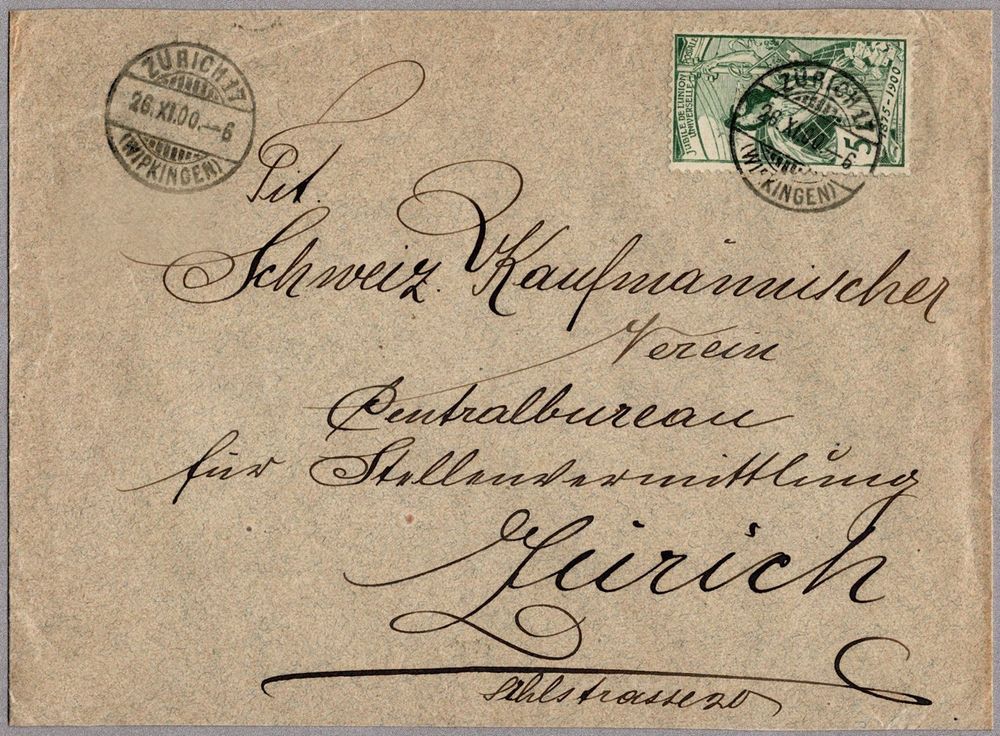 ZÜRICH 17
26.XI.00.–6
(WIPKINGEN)
JUBILÉ DE L'UNION
UNIVERSELLE POSTALE
1875-1900
5
ZÜRICH 17
26.XI.00.–6
(WIPKINGEN)
Tit.
Schweiz. Kaufmännischer
Verein
Centralbureau
für Stellenvermittlung
Zürich
Sihlstrasse 20